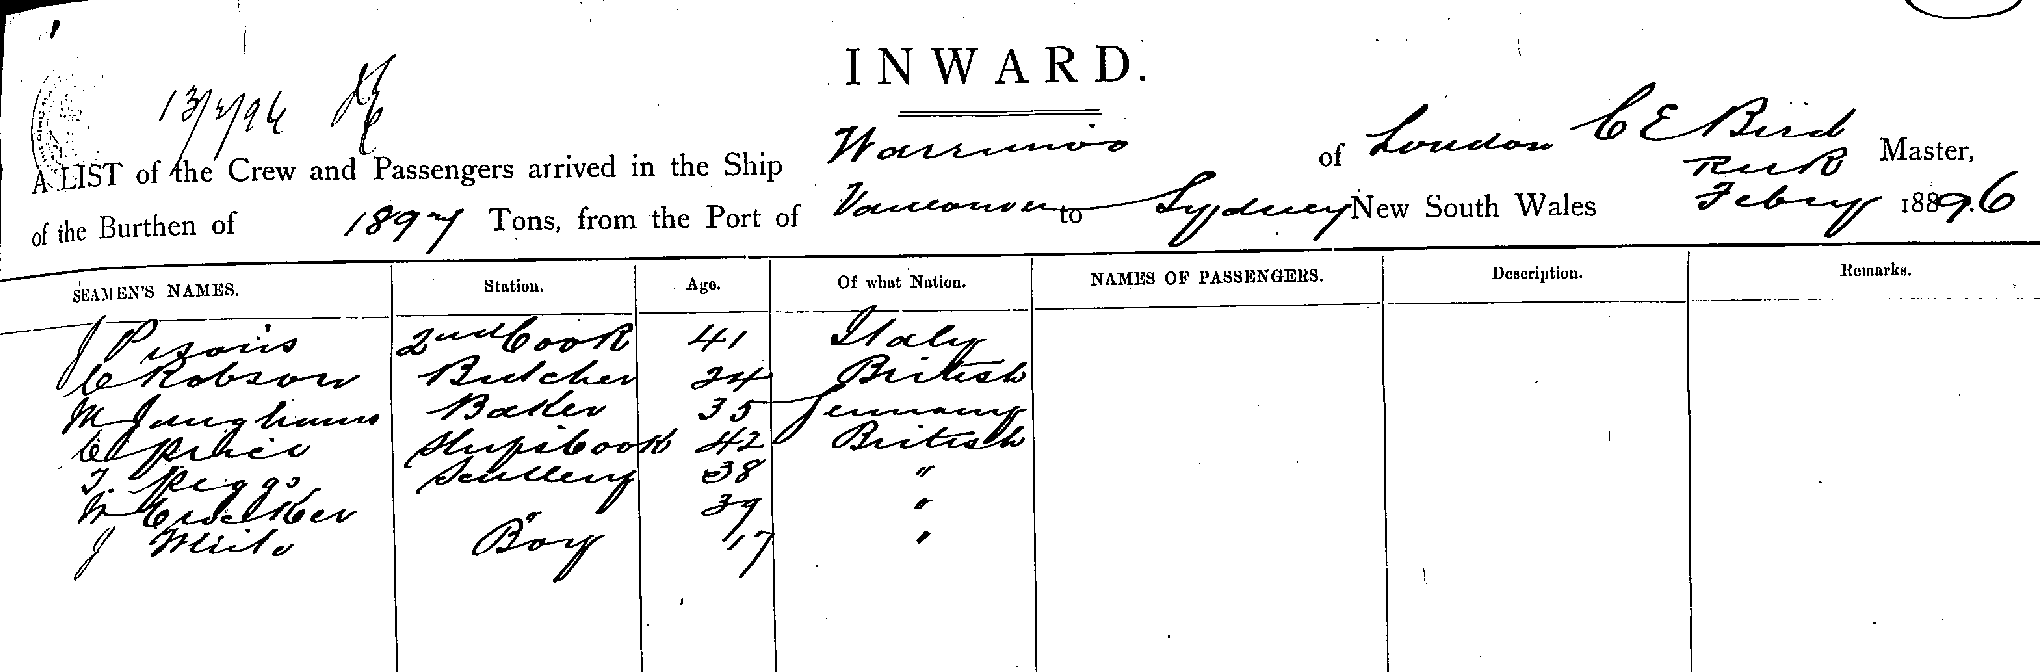 INWARD.
13/2/96
A LIST of the Crew and Passengers arrived in the Ship Warrimoo of London C E Bird RNR Master,
of the Burthen of 1897 Tons, from the Port of Vancouver to Sydney New South Wales Febry 1896
SEAMEN'S NAMES. Station. Age. Of what Nation. NAMES OF PASSENGERS. Description. Remarks.
J 2nd Cook 41 Italy
C Robson Butcher 24 British
M Junghanns Baker 35 Germany
C Price Ships Cook 42 British
T. Piggs Scullery 38 "
W Crocker " 39 "
J White Boy 17 "